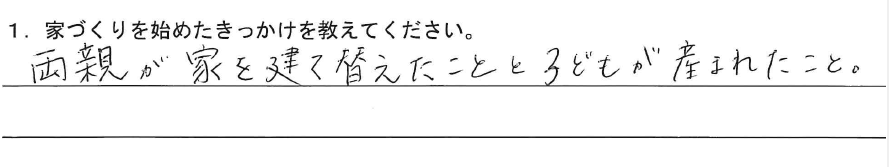 1. 家づくりを始めたきっかけを教えてください。
両親が家を建て替えたことと子どもが産まれたこと。